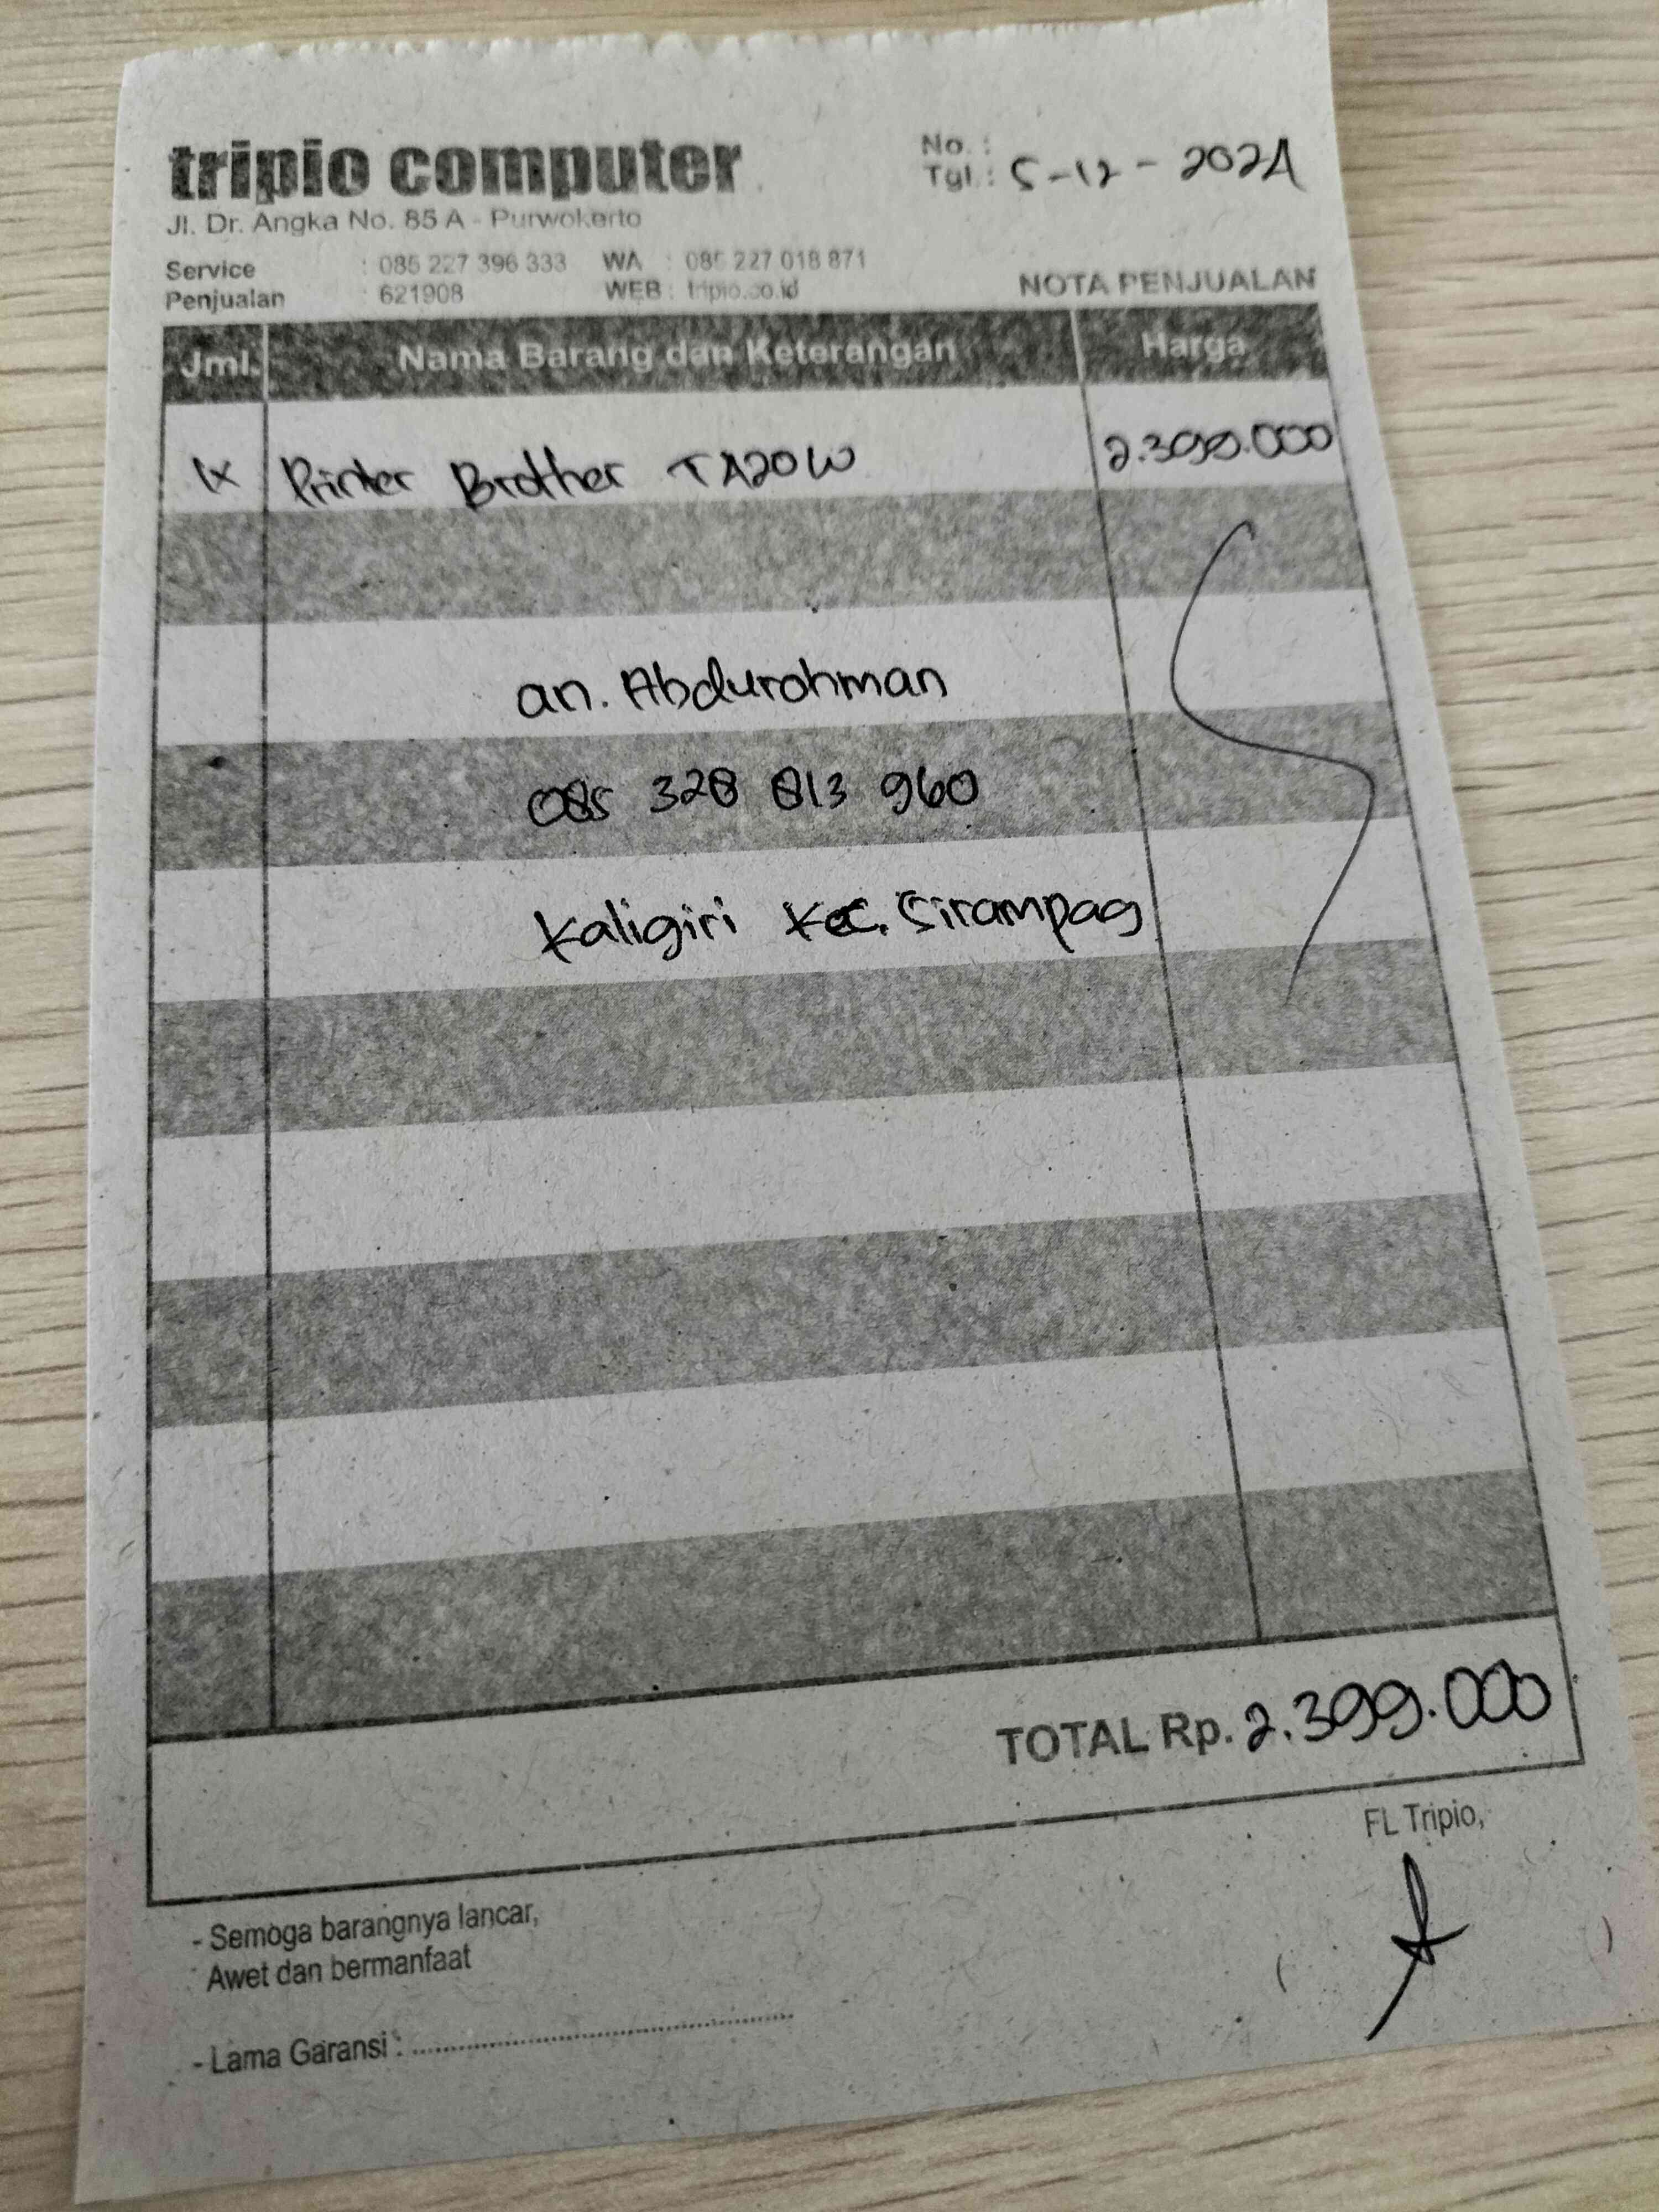 tripio computer
Jl. Dr. Angka No. 85 A - Purwokerto
No. :
Tgl. : 5-12-2024
Service : 085 227 396 333 WA : 085 227 018 871
Penjualan : 621908 WEB : tripio.co.id
NOTA PENJUALAN
Jml. Nama Barang dan Keterangan Harga
1x Printer Brother T420W 2.399.000
an. Abdurohman
085 328 813 960
Kaligiri Kec. Sirampag
TOTAL Rp. 2.399.000
FL Tripio,
- Semoga barangnya lancar,
Awet dan bermanfaat
( )
- Lama Garansi : ....................